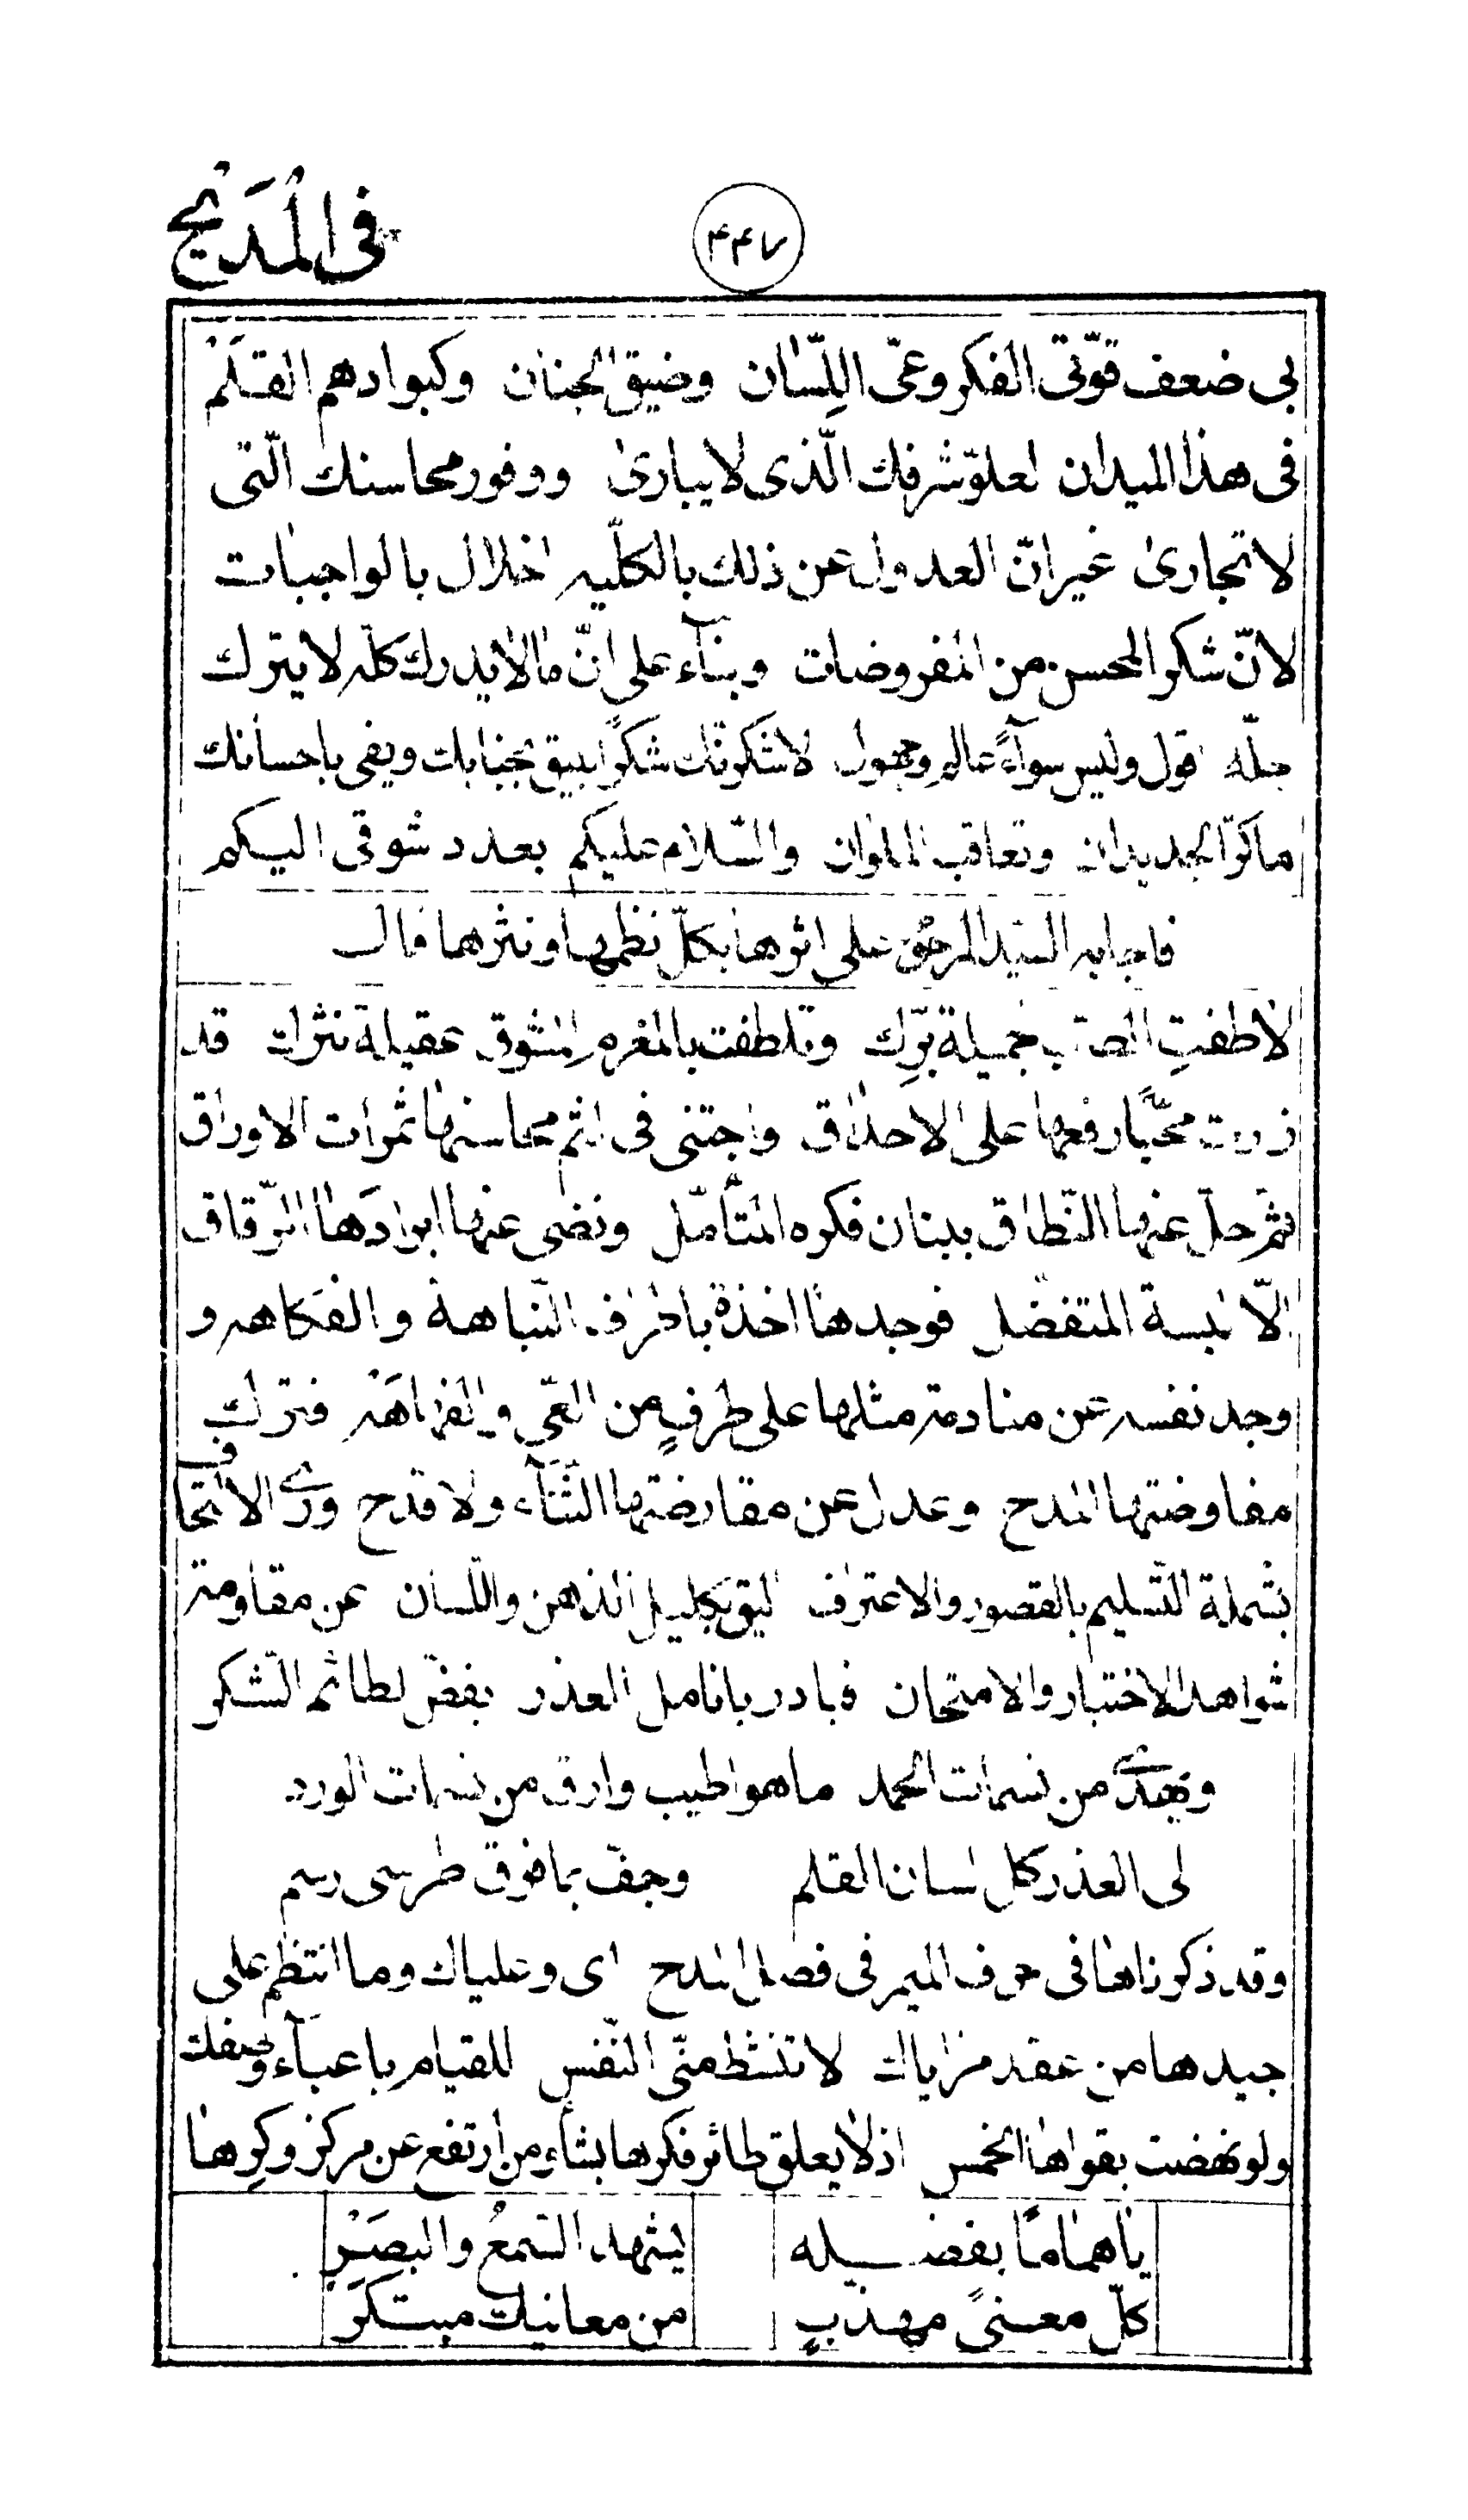 فى المَديْح
٤٤٧
بى ضعف قوّتى الفكر وعىّ اللِّسان وضيق الجنان وكبوادهم القَلَمْ
فى هذا الميدان لعلوّ شرفك الّذى لا يبارى ووفور محاسنك الّتى
لا تجارى غير انّ العدول عن ذلك بالكلّيه اخلال بالواجبات
لانّ شكر المحسن من المفروضات وبنآء على انّ ما لا يدرك كلّه لا يترك
جلّه اقول وليس سوآءً عالم وجهول لاشكرنّك شكرًا يليق بجنابك ويفى باحسانك
ما كرّ الجديدان وتعاقب الملوان والسّلام عليكم بعدد شوقى اليكم
فاجابه السّيّد المرحوم على اثرها بكلّ نظمها ونثرها فقال
لاطفتِ الصبّ جميلة برِّك وتلطفت بالمغرم المشوق عقيلة نثرك قد
زرت محبًّا رفعها على الاحداق واجتنى فى لثم محاسنها ثمرات الاوراق
ثمّ حلّ عنها النّطاق ببنان فكره المتأمّل ونضى عنها ابرادَها الرّقاق
الّا لبسة المتفضّل فوجدها اخذة باطراف النّباهة والفكاهه و
وجد نفسه عن منادمة مثلها على طرفٍ من العىّ والفهاهَهْ فترك
مفاوضتها المدح وعدل عن مقارضتها الثّنآء ولا قدح ورأى الالتحاف
بشملة التّسليم بالقصور والاعتراف اليق بكليل الذهن واللّسان عن مقاومة
شواهد الاختبار والامتحان فبادر بانامل العذر بفضّ لطائم الشّكر
ويهدى من نسمات الحمد ما هو اطيب وارق من نسمات الورد
لى العذر كل لسان القلم وجفّ بما فوق طرسى رسم
وقد ذكرناها فى حرف الميم فى فصل المدح اى وعلياك وما انتظم على
جيدها من عقد مزاياك لا تنشط منّى النّفس للقيام باعبآء وصفك
ولو نهضت بقواها الخمس اذ لا يعلق طائر فكرها بشأو من ارتفع عن مركز وكرِها
يا هماماً بفضله يشهد السّمعُ والبصَرْ
كلّ معنىً مهذّبٍ من معانيك مبتكَرْ